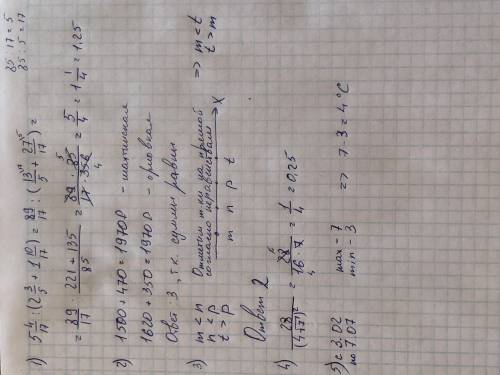 85 : 17 = 5
85 : 5 = 17
1) 5 4/17 : (2 3/5 + 1 10/17) = 89/17 : (13/5 + 27/17) =
= 89/17 : (221 + 135)/85 = 89/17 · 85/356 = 5/4 = 1 1/4 = 1,25
2) 1500 + 470 = 1970₽ - шахтинская
1620 + 350 = 1970₽ - орловская
Ответ: 3, т.к. суммы равны
3) m < n
n < p
t > p
Отметим т-ки на прямой
согласно неравенствам
m n p t X
=> m < t
t > m
Ответ 2
4) 28/(4√7)² = 28/(16·7) = 1/4 = 0,25
5) с 3.02
по 7.07
max - 7
min - 3
=> 7 - 3 = 4 °C